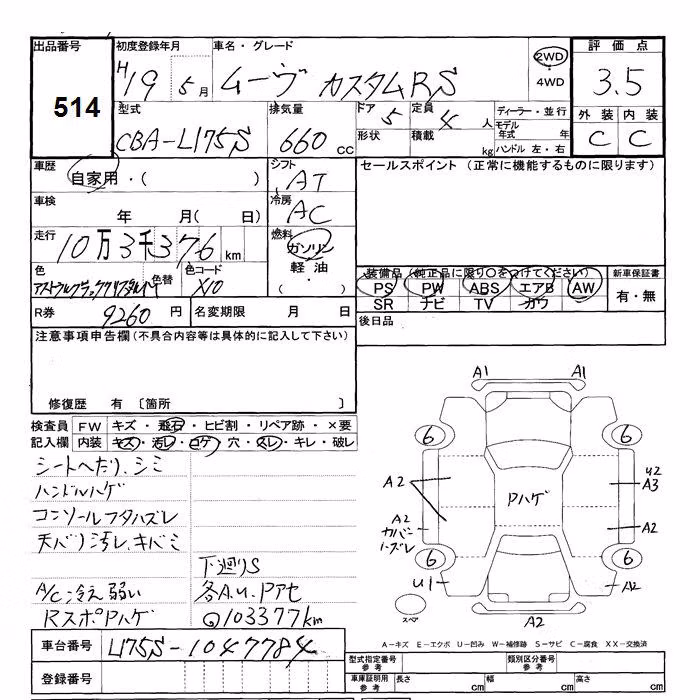 出品番号 初度登録年月 車名・グレード 評価点
514 H19 5月 ムーヴ カスタムRS 2WD ・ 4WD 3.5
型式 排気量 ドア 定員 ディーラー・並行 外装 内装
CBA-L175S 660cc 5 4人 モデル年式 年 C C
形状 積載 kg ハンドル 左・右
車歴 シフト セールスポイント (正常に機能するものに限ります)
自家用・( ) AT
車検 冷房
年 月( 日) AC
走行 燃料
10万3千376km ガソリン
軽油
・( )
色 色替 色コード
X10
装備品(純正品に限り○をつけてください) 新車保証書
PS PW ABS エアB AW 有・無
SR ナビ TV カワ
R券 9260円 名変期限 月 日 後日品
注意事項申告欄(不具合内容等は具体的に記入して下さい)
修復歴 有 〔箇所 〕
検査員 FW キズ・飛石・ヒビ割・リペア跡・×要
記入欄 内装 キズ・汚レ・コゲ・穴・スレ・キレ・破レ
シートヘたり、シミ
ハンドルハゲ
コンソールフタハズレ
天バリ汚レ、キバミ
下廻りS
A/C冷え弱い 各A.U.Pアセ
RスポPハゲ ◎103377km
車台番号 L175S-1047784
登録番号
A1 A1
6 6
A2 U2
A3
Pハゲ
A2 A2
カバーハズレ
6 6
U1 A2
スペア A2
A-キズ E-エクボ U-凹み W-補修跡 S-サビ C-腐食 XX-交換済
型式指定番号 参考 類別区分番号 参考
車庫証明用 参考 長さ cm 幅 cm 高さ cm